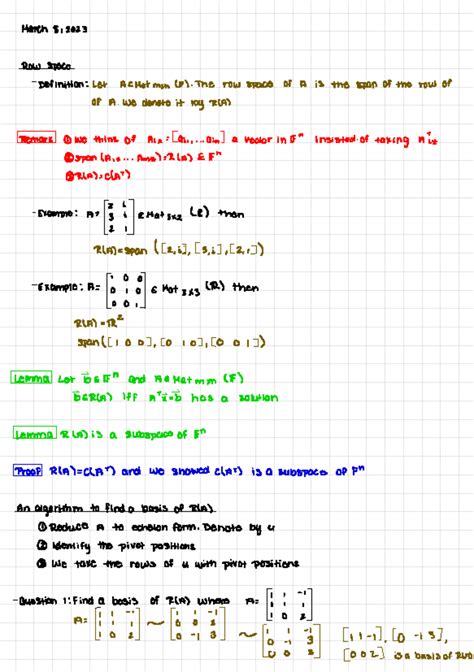 March 8, 2023
Row space
- Definition: Let A∈Mat mxn (F). The row space of A is the span of the row of
of A. We denote it by R(A)
Remark ① We think of A₁ₓ = [a₁₁, ... a₁ₙ] a vector in Fⁿ instead of taking
② span (A₁ₓ ... Aₘₓ) = R(A) ∈ Fⁿ
③ R(A) = C(Aᵀ)
- Example: A = [2 i; 3 i; 2 1] ∈ Mat 3x2 then
R(A) = span ([2,i], [3,i], [2,1])
- Example: A = [1 0 0; 0 1 0; 0 0 1] ∈ Mat 3x3 (R) then
R(A) = R²
span([1 0 0], [0 1 0], [0 0 1])
Lemma Let b⃗∈Fⁿ and A∈Mat mxn (F)
b⃗∈R(A) iff Aᵀx⃗=b⃗ has a solution
Lemma R(A) is a subspace of Fⁿ
Proof R(A)=C(Aᵀ) and we showed C(Aᵀ) is a subspace of Fⁿ
An algorithm to find a basis of R(A)
① Reduce A to echelon form. Denote by u
② Identify the pivot positions
③ We take the rows of u with pivot positions
- Question 1: Find a basis of R(A) where A = [1 1 -1; 1 1 1; 1 0 2]
A = [1 1 -1; 1 1 1; 1 0 2] ~ [1 1 -1; 0 0 2; 0 -1 3] ~ [1 1 -1; 0 -1 3; 0 0 2] [1 1 -1], [0 -1 3],
[0 0 2] is a basis of R(A)